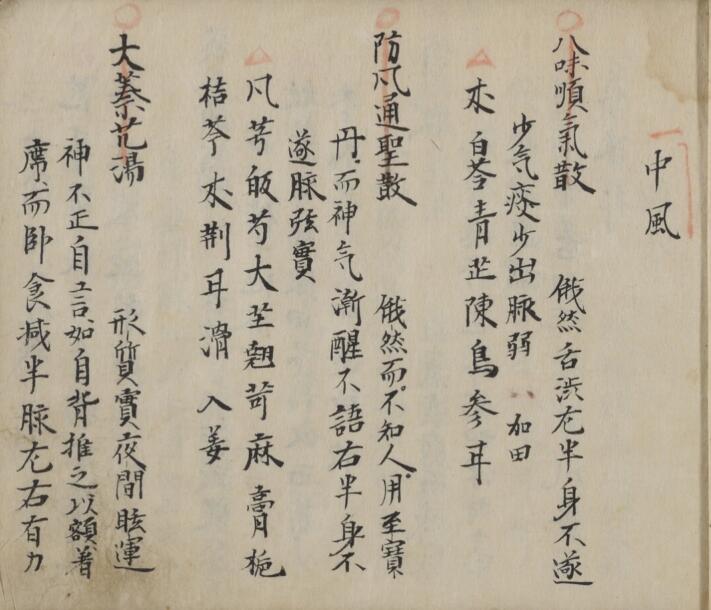 中風
八味順氣散　俄然舌渋左半身不遂
少气痰少出脈弱　加田
朮白苓青芷陳烏参耳
防凨通聖散　俄然而不知人用至寶
丹而神气漸醒不語右半身不
遂脈弦實
凡芎皈芍大芷翹苛麻膏栀
桔芩朮荆耳滑入姜
大蓁艽湯　形質實夜間眩運
神不正自言如自背推之以額著
席而卧食减半脈左右有力